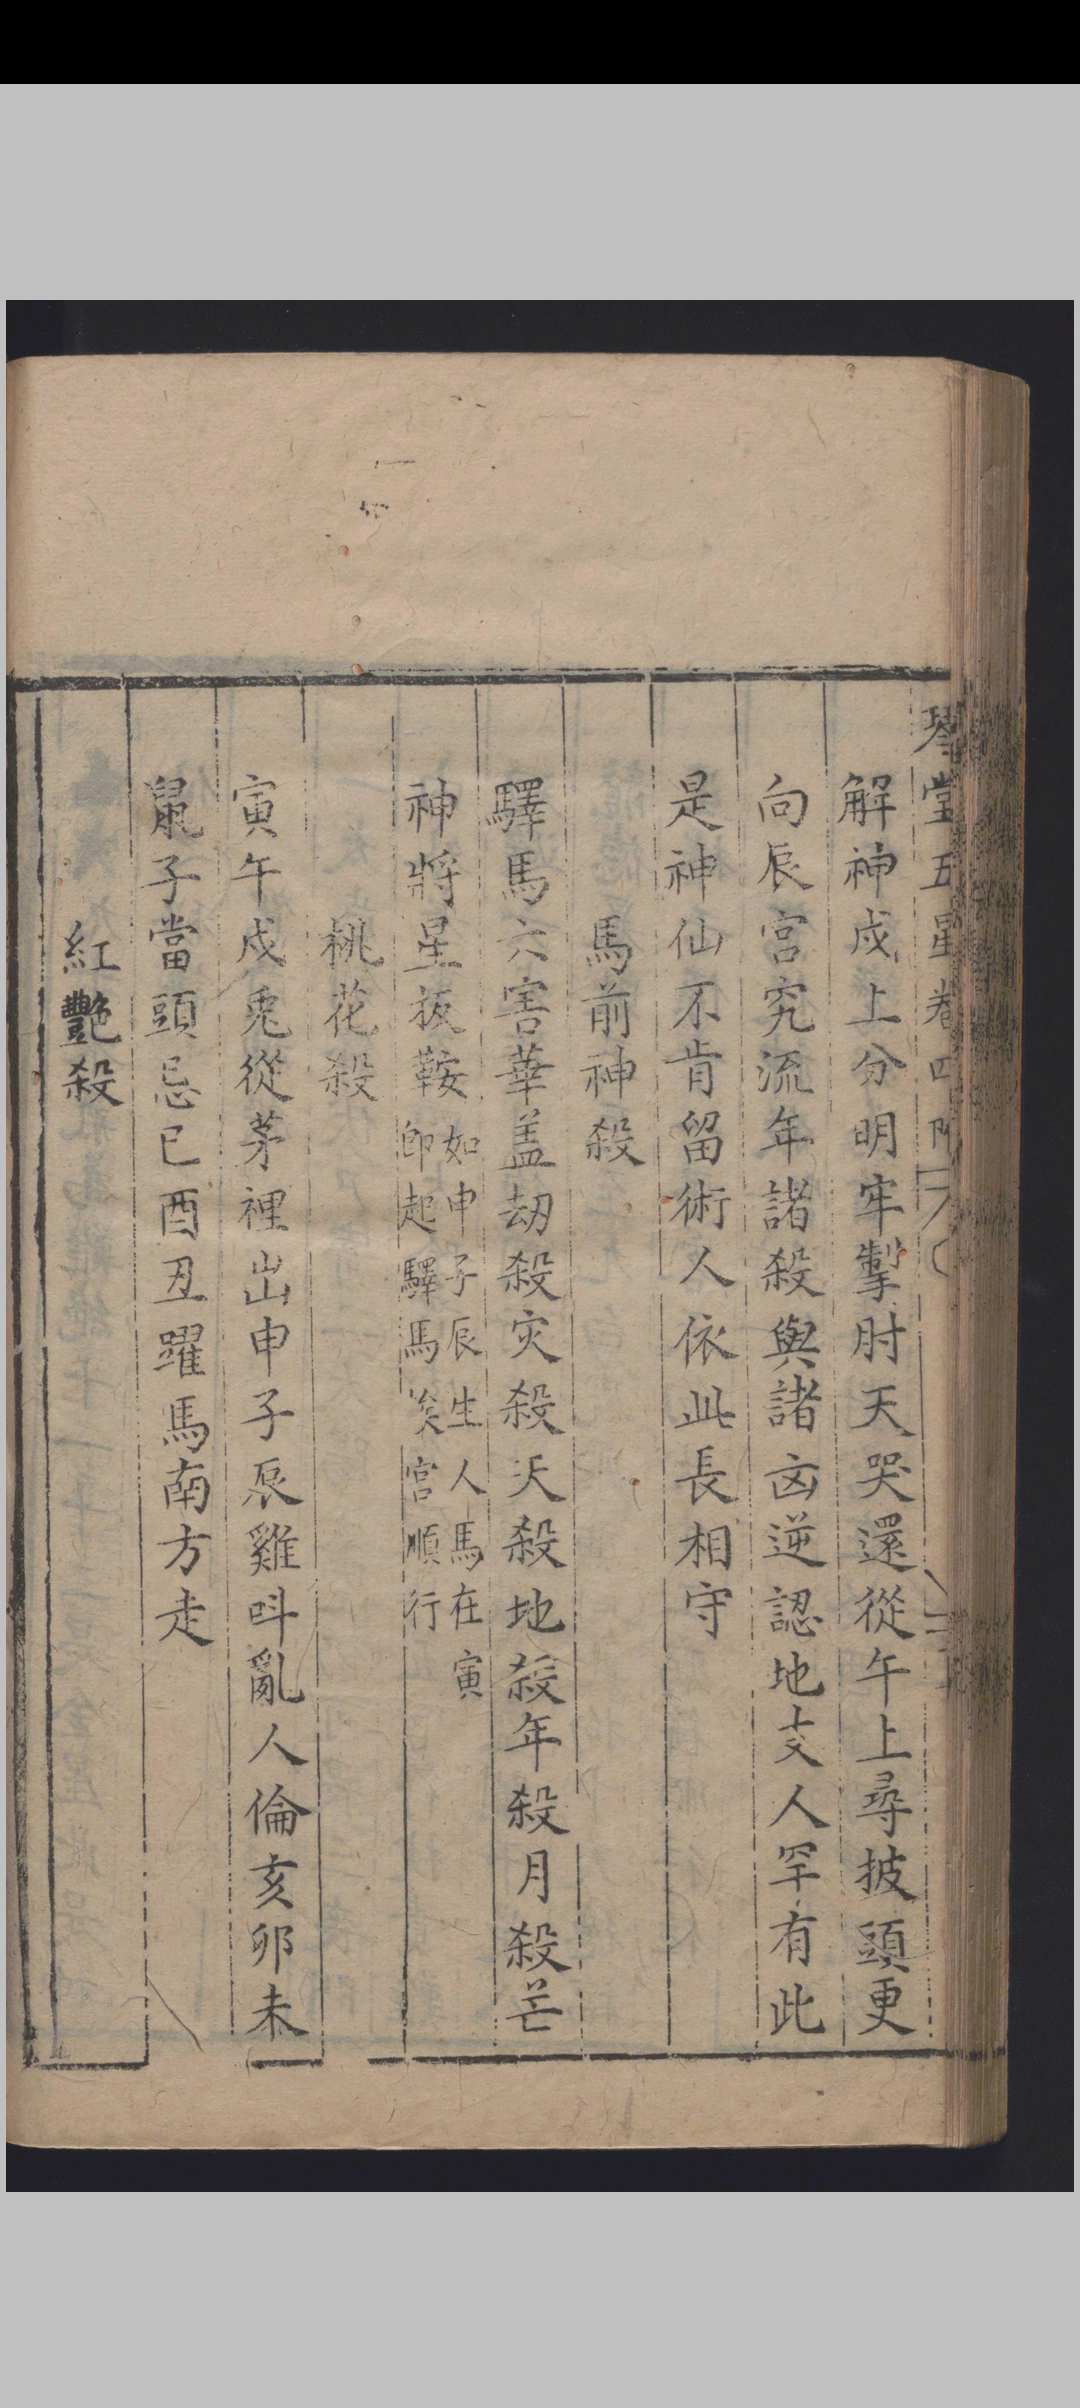 琴堂五星卷四
解神戍上分明牢掣肘天哭還從午上尋披頭更
向辰宮究流年諸殺與諸凶逆認地支人罕有此
是神仙不肯留術人依此長相守
馬前神殺
驛馬六害華盖劫殺灾殺天殺地殺年殺月殺亡
神將星扳鞍如申子辰生人馬在寅
即起驛馬挨宮順行
桃花殺
寅午戍兎從茅裡出申子辰雞呌亂人倫亥卯未
鼠子當頭忌巳酉丑躍馬南方走
紅艷殺